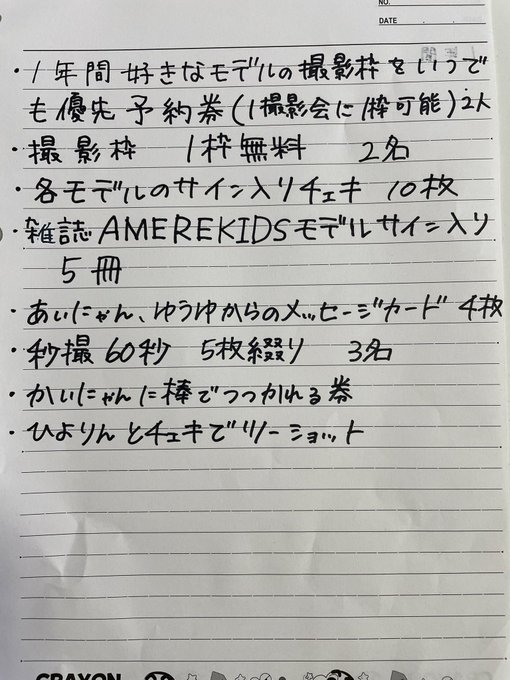 NO.
DATE
・1年間好きなモデルの撮影枠をいつで
も優先予約券(1撮影会に1枠可能)2人
・撮影枠 1枠無料 2名
・各モデルのサイン入りチェキ 10枚
・雑誌AMEREKIDSモデルサイン入り
5冊
・あいにゃん、ゆうゆからのメッセージカード 4枚
・秒撮60秒 5枚綴り 3名
・かいにゃんに棒でつつかれる券
・ひよりんとチェキでツーショット
CRAYON